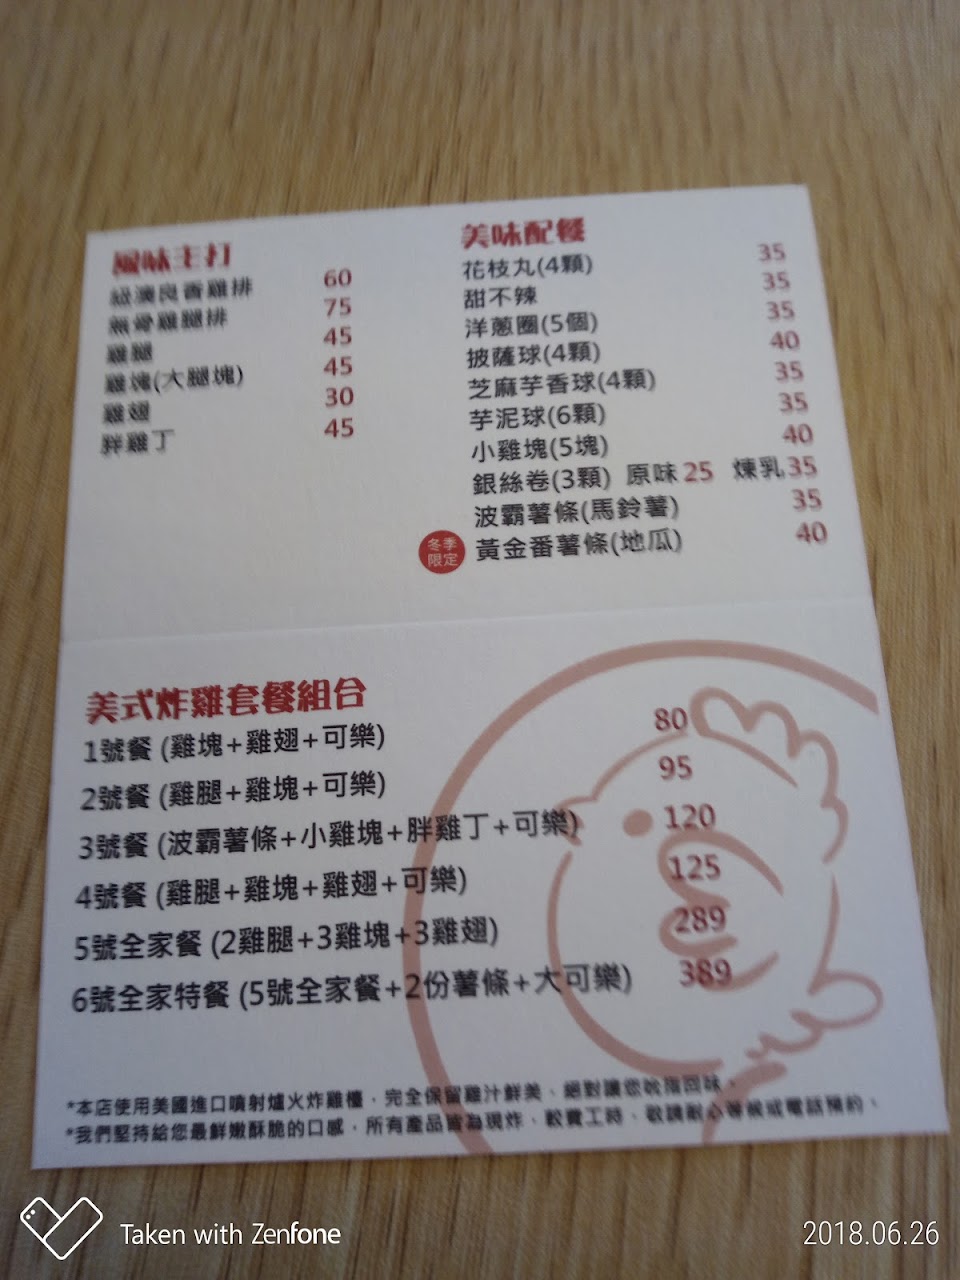 風味主打
級漢良香雞排 60
無骨雞腿排 75
雞腿 45
雞塊(大腿塊) 45
雞翅 30
胖雞丁 45
美味配餐
花枝丸(4顆) 35
甜不辣 35
洋蔥圈(5個) 35
披薩球(4顆) 40
芝麻芋香球(4顆) 35
芋泥球(6顆) 35
小雞塊(5塊) 40
銀絲卷(3顆) 原味25 煉乳35
波霸薯條(馬鈴薯) 35
冬季
限定
黃金番薯條(地瓜) 40
美式炸雞套餐組合
1號餐 (雞塊+雞翅+可樂) 80
2號餐 (雞腿+雞塊+可樂) 95
3號餐 (波霸薯條+小雞塊+胖雞丁+可樂) 120
4號餐 (雞腿+雞塊+雞翅+可樂) 125
5號全家餐 (2雞腿+3雞塊+3雞翅) 289
6號全家特餐 (5號全家餐+2份薯條+大可樂) 389
*本店使用美國進口噴射爐火炸雞檯，完全保留雞汁鮮美、絕對讓您吮指回味。
*我們堅持給您最鮮嫩酥脆的口感，所有產品皆為現炸、較費工時、敬請耐心等候或電話預約。
Taken with Zenfone
2018.06.26